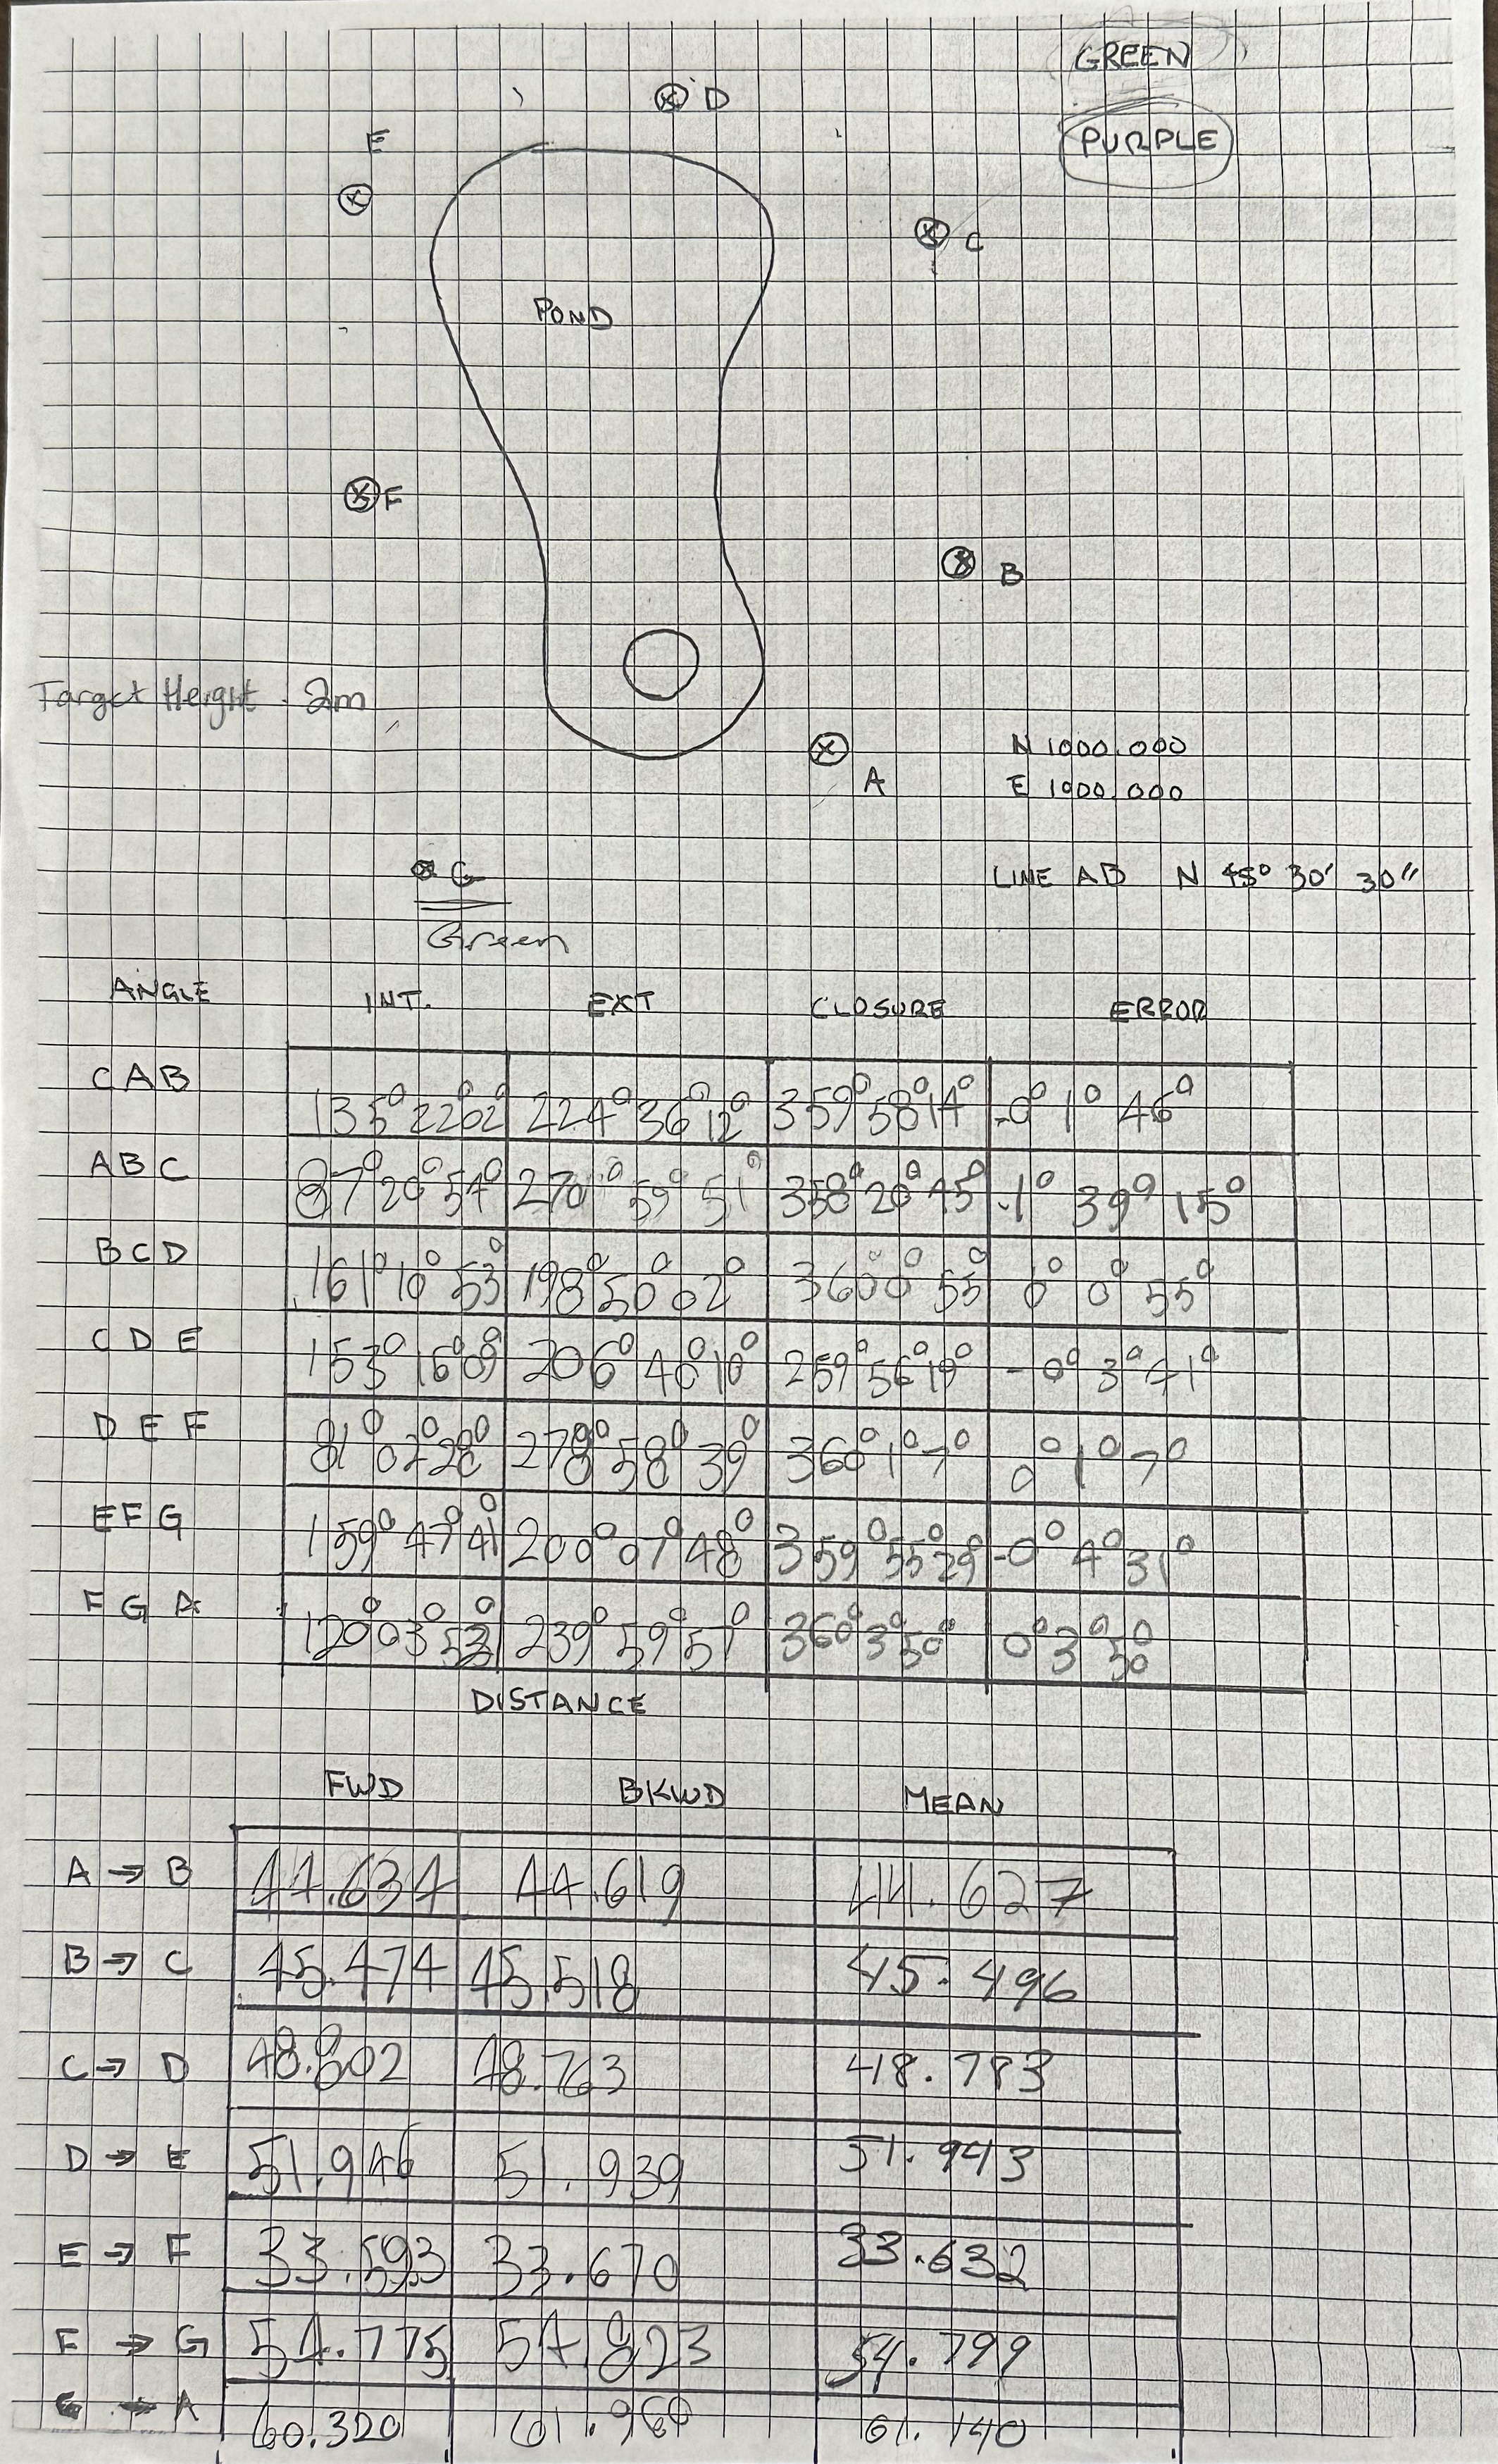 GREEN
D
PURPLE
E
C
POND
F
B
Target Height - 2m
N 1000.000
E 1000.000
A
G
LINE AB N 45° 30' 30"
Green
ANGLE INT. EXT CLOSURE ERROR
CAB 135° 22° 02° 224° 36° 12° 359° 58° 14° -0° 1° 46°
ABC 87° 20° 54° 270° 59° 51° 358° 20° 45° -1° 39° 15°
BCD 161° 10° 53° 198° 50° 02° 360° 0° 55° 0° 0° 55°
CDE 153° 16° 09° 206° 40° 10° 259° 56° 19° -0° 3° 41°
DEF 81° 02° 28° 278° 58° 39° 360° 1° 7° 0° 1° 7°
EFG 159° 47° 41° 200° 07° 48° 359° 55° 29° -0° 4° 31°
FGA 120° 03° 53° 239° 59° 57° 360° 3° 50° 0° 3° 50
DISTANCE
FWD BKWD MEAN
A → B 44.634 44.619 44.627
B → C 45.474 45.518 45.496
C → D 48.802 48.763 48.783
D → E 51.946 51.939 51.943
E → F 33.593 33.670 33.632
F → G 54.775 54.823 54.799
G → A 60.320 61.960 61.140